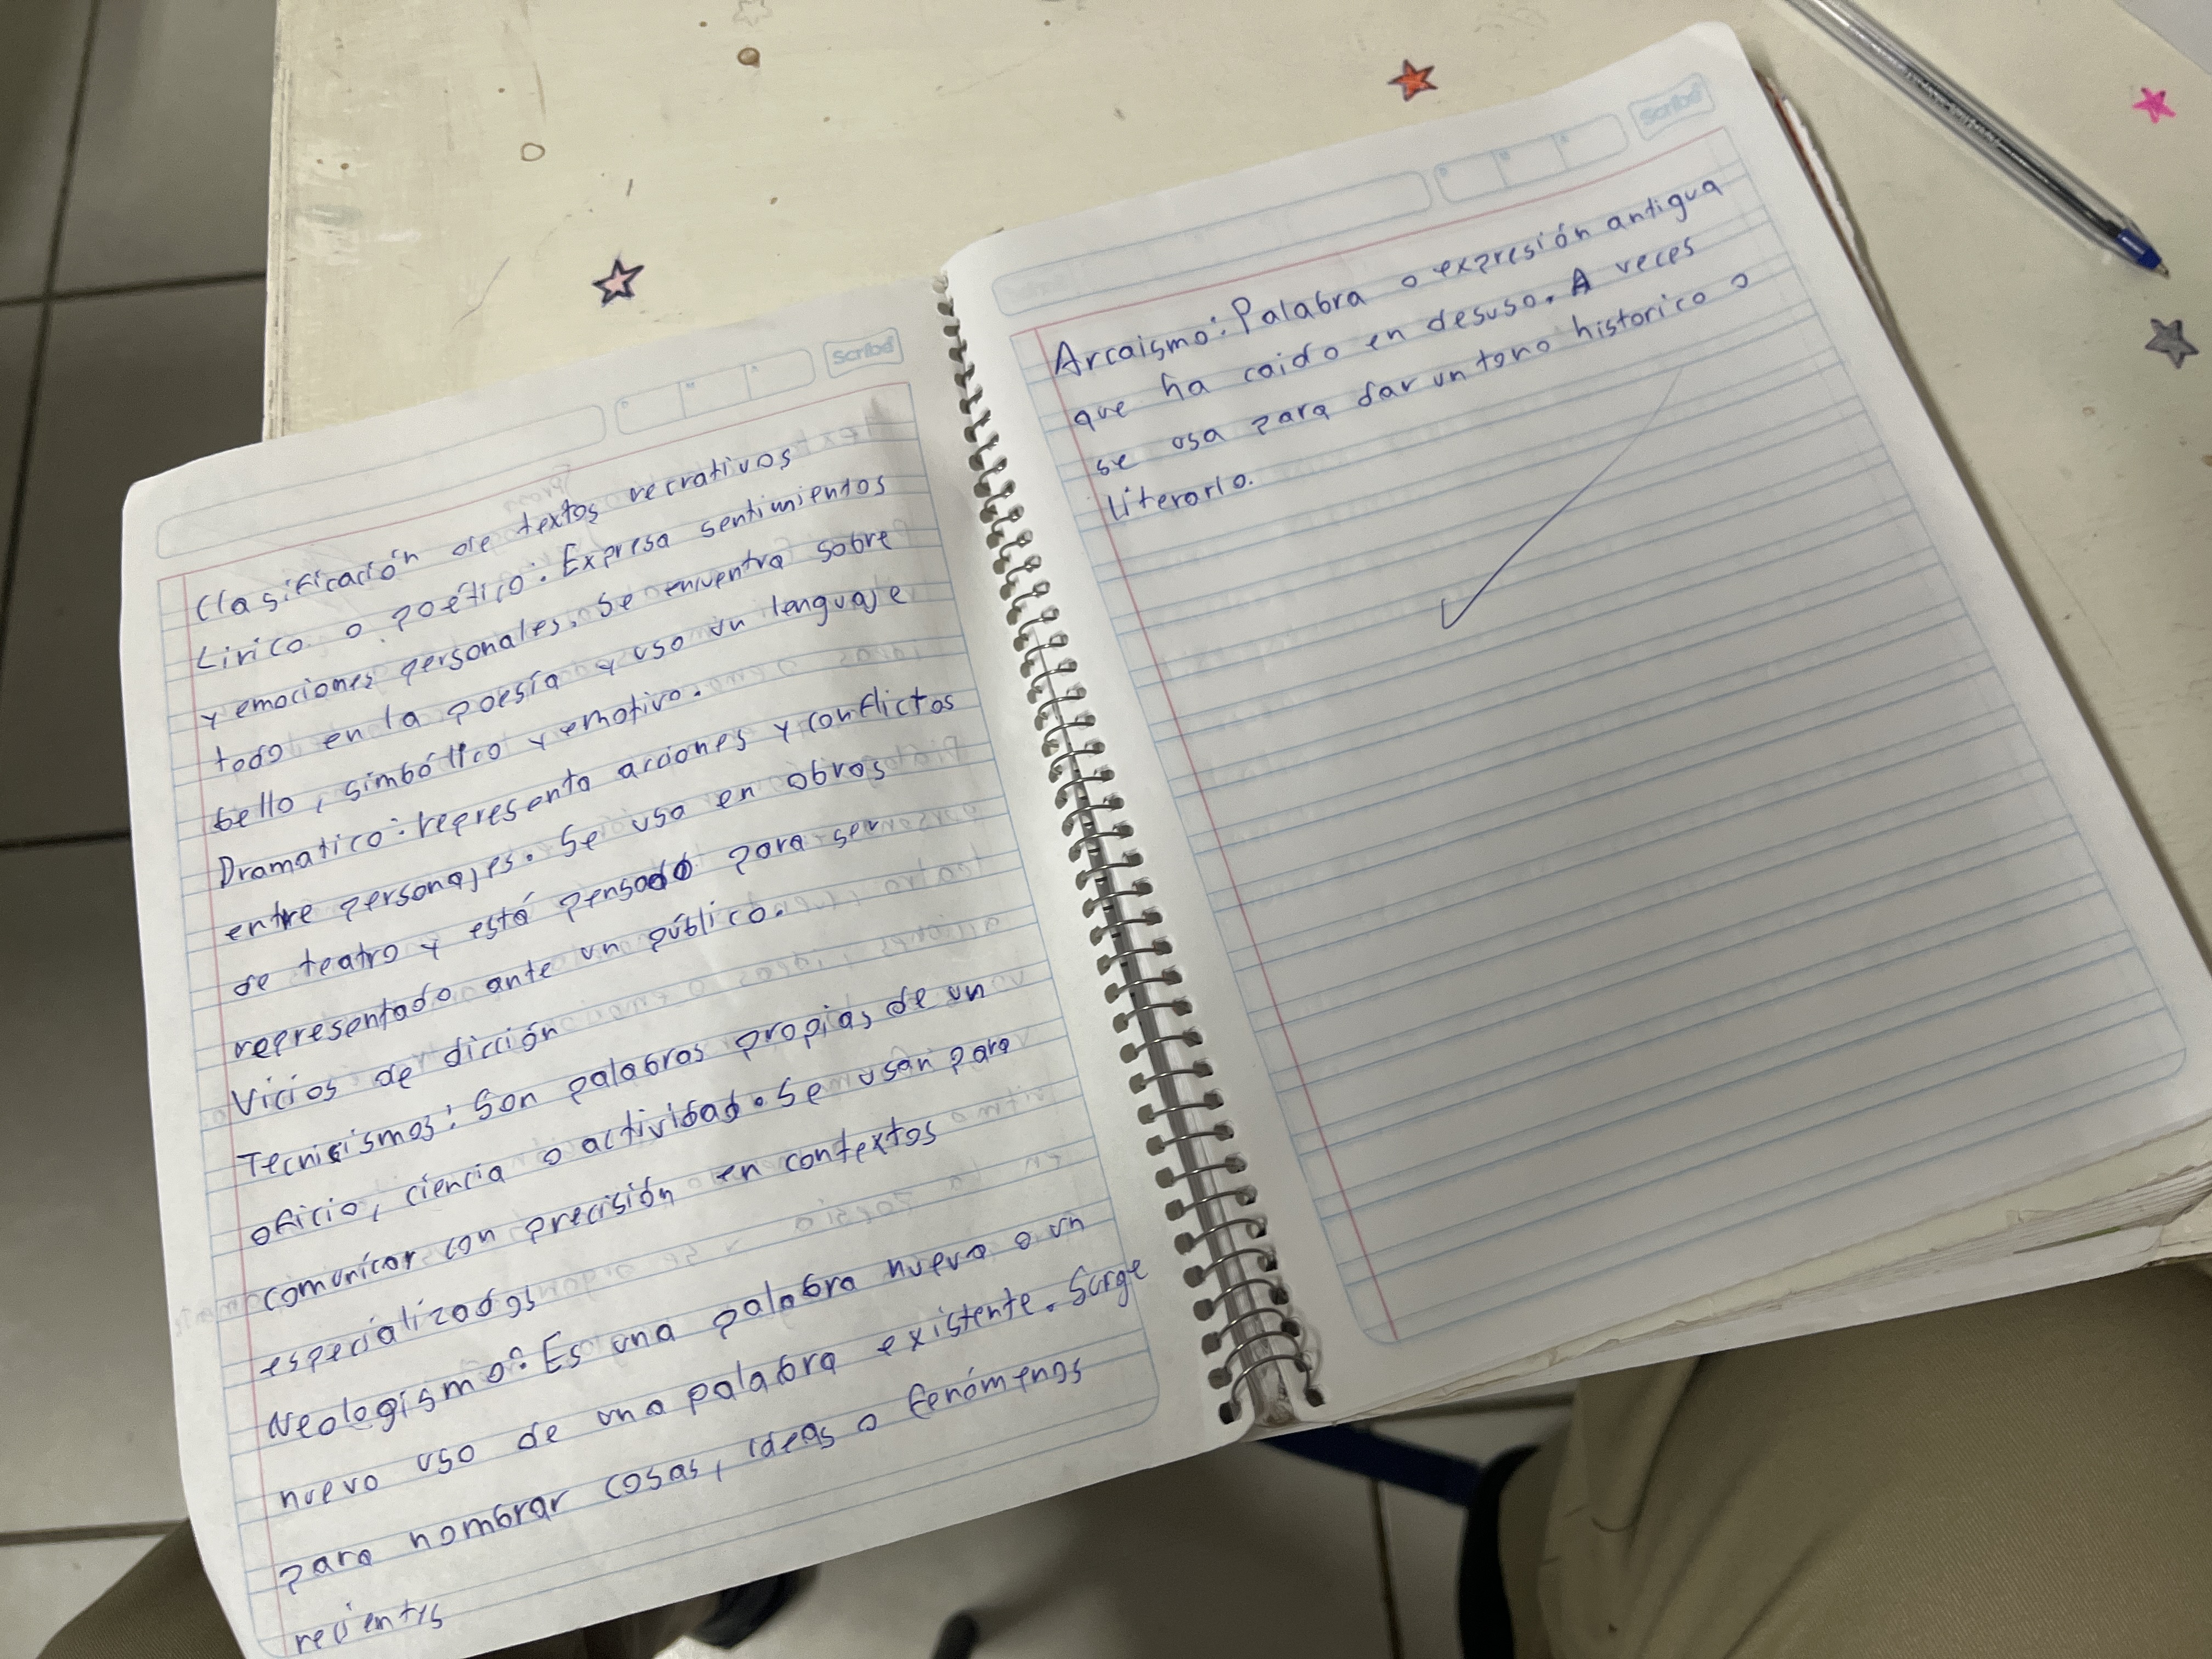 Scribe
Clasificación de textos recrativos
Lirico o poético: Expresa sentimientos
y emociones personales. Se encuentra sobre
todo en la poesía y uso un lenguaje
bello, simbólico y emotivo.
Dramatico: representa acciones y conflictos
entre personajes. Se usa en obras
de teatro y está pensado para ser
representado ante un público.
Vicios de dicción
Tecnicismos: Son palabras propias de un
oficio, ciencia o actividad. Se usan para
comunicar con precisión en contextos
especializados
Neologismo: Es una palabra nueva o un
nuevo uso de una palabra existente. Surge
para nombrar cosas, ideas o fenómenos
recientes
Scribe
Arcaismo: Palabra o expresión antigua
que ha caido en desuso. A veces
se usa para dar un tono historico o
literario.